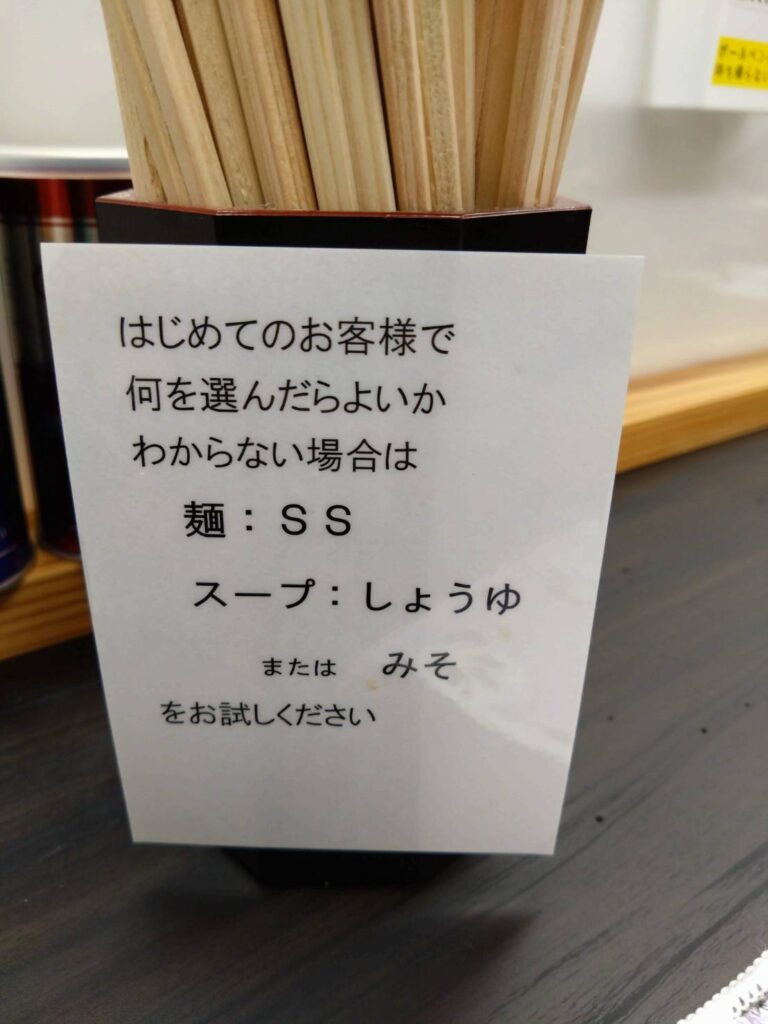 はじめてのお客様で
何を選んだらよいか
わからない場合は
麺：ＳＳ
スープ：しょうゆ
または　みそ
をお試しください